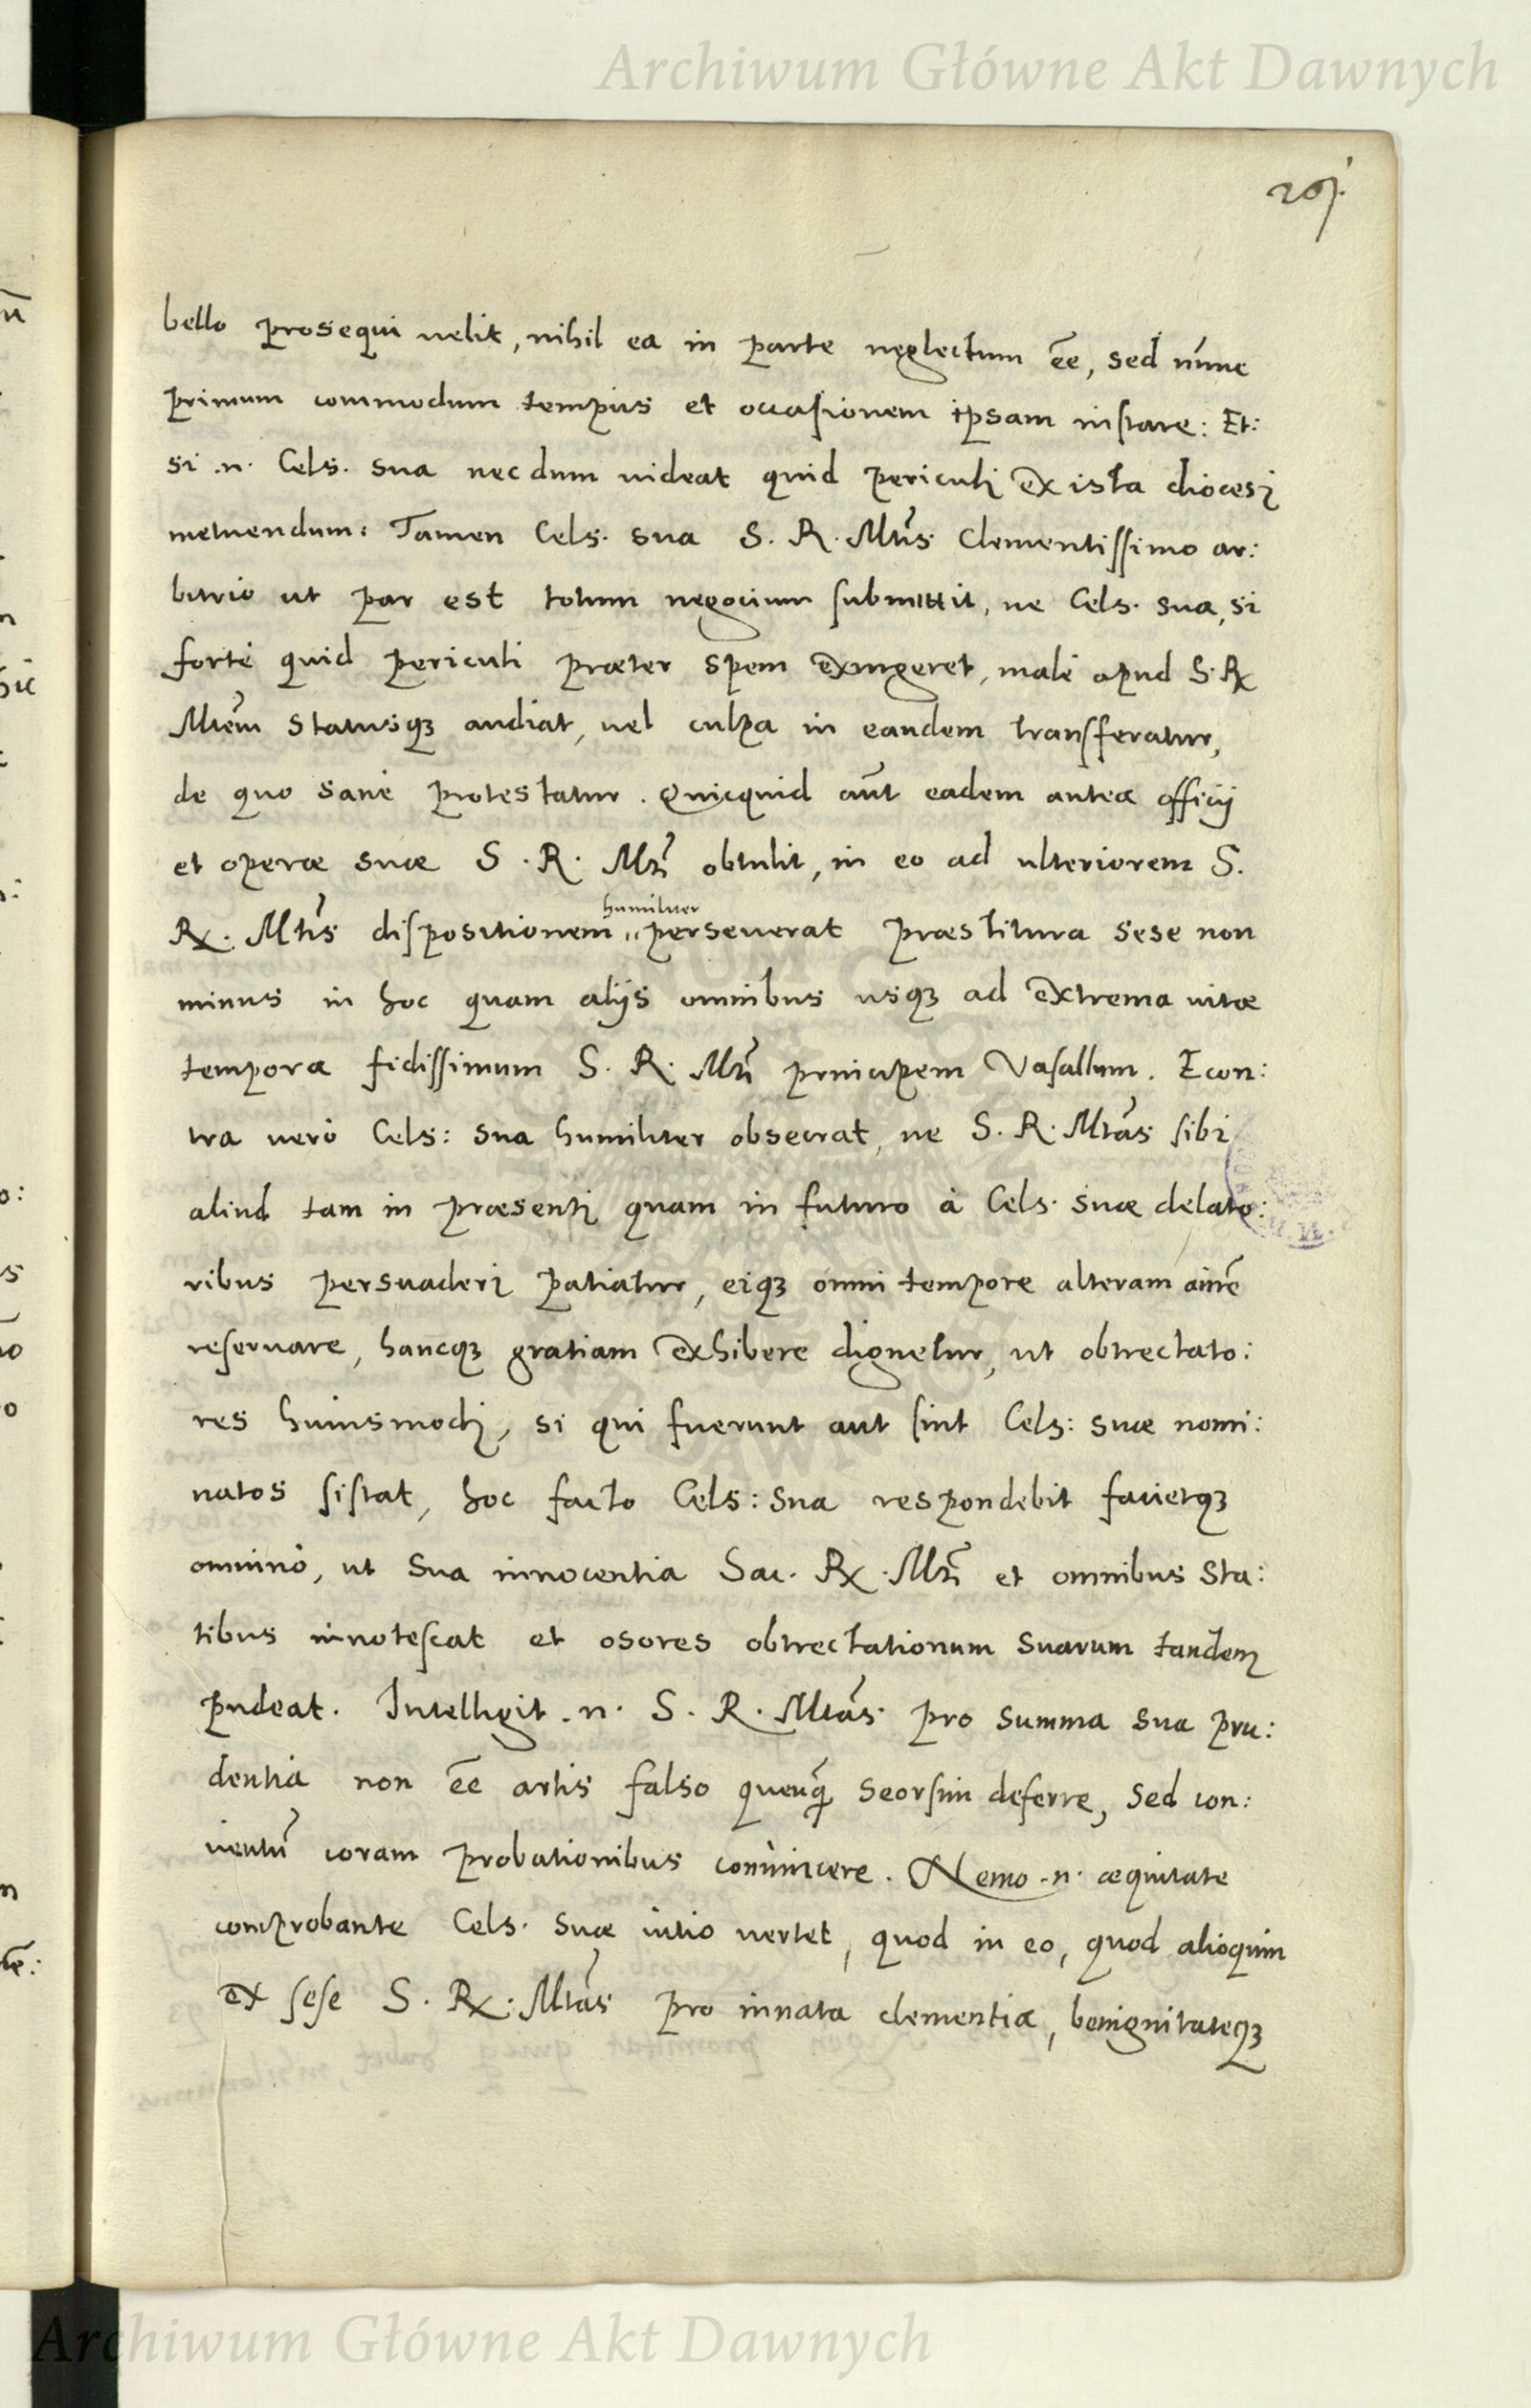 Archiwum Główne Akt Dawnych
201.
bello prosequi uelit, nihil ea in parte neglectum ẽe, sed nunc
primum commodum tempus et occasionem ipsam instare: Et:
si .n. Cels. sua necdum uideat quid periculi ex ista diocesi
metuendum: Tamen Cels. sua S. R. Mtis Clementissimo ar:
bitrio ut par est totum negocium submittit, ne Cels. sua, si
forte quid periculi præter spem exurgeret, malè apud S. R.
Mtem Statusq3 audiat, uel culpa in eandem transferatur,
de quo sanè protestatur. Quicquid aũt eadem antea officij
et operæ suæ S. R. Mti obtulit, in eo ad ulteriorem S.
humiliter
R. Mtis dispositionem perseuerat præstitura sese non
minus in hoc quam alijs omnibus usq3 ad extrema uitæ
tempora fidissimum S. R. Mti principem Vasallum. Econ:
tra uerò Cels: sua humiliter obsecrat, ne S. R. Mtas sibi
aliud tam in præsenti quam in futuro à Cels. suæ delato:
ribus persuaderi patiatur, eiq3 omni tempore alteram aurẽ
reseruare, hancq3 gratiam exhibere dignetur, ut obtrectato:
res huiusmodi, si qui fuerunt aut sint Cels: suæ nomi:
natos sistat, hoc facto Cels: sua respondebit facietq3
omninò, ut sua innocentia Sac. R. Mti et omnibus Sta:
tibus innotescat et osores obtrectationum suarum tandem
pudeat. Intelligit .n. S. R. Mtas pro summa sua pru:
dentia non ẽe artis falso quenq̃ seorsim deferre, sed con:
uentũ coram probationibus conuincere. Nemo .n. æquitate
comprobante Cels. suæ uitio uertet, quod in eo, quod alioquin
ex sese S. R. Mtas pro innata clementia, benignitateq3
Archiwum Główne Akt Dawnych